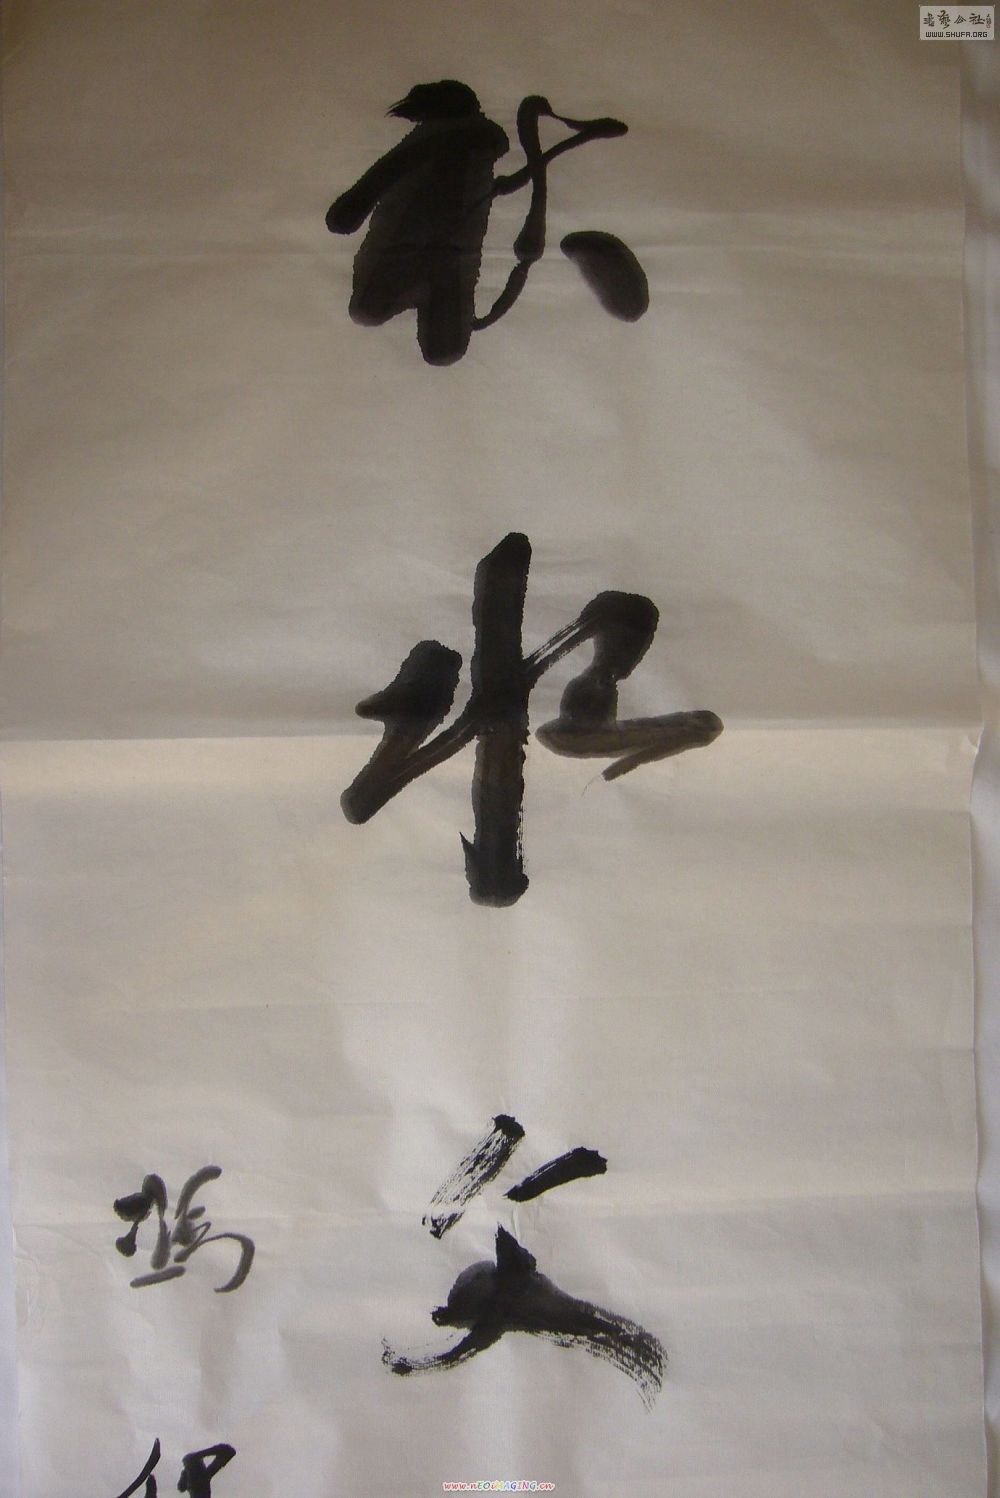 秋水文
冯
书艺公社
WWW.SHUFA.ORG
www.nEOiMAGING.cn